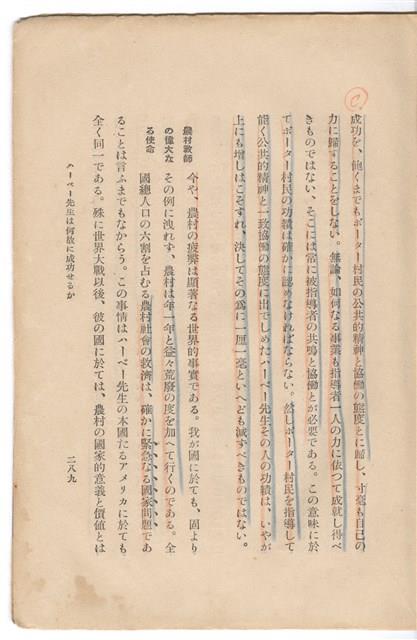 C.
成功を、飽くまでもポーター村民の公共的精神と協働の態度とに歸し、寸毫も自己の
力に歸することをしない。無論、如何なる事業も指導者一人の力に依つて成就し得べ
きものではない、そこには常に被指導者の共鳴と協働とが必要である。この意味に於
てポーター村民の功績は確かに認めなければならない。然しポーター村民を指導して
能く公共的精神と一致協働の態度に出でしめたハーベー先生その人の功績は、いやが
上にも増しはこそすれ、決してその爲に一厘一毫といへども減すべきものではない。
農村敎師
の偉大な
る使命
今や、農村の疲弊は顯著なる世界的事實である。我が國に於ても、固より
その例に洩れず、農村は年一年と益々荒廢の度を加へて行くのである。全
國總人口の六割を占むる農村社會の救濟は、確かに緊急なる國家問題であ
ることは言ふまでもなからう。この事情はハーベー先生の本國たるアメリカに於ても
全く同一である。殊に世界大戰以後、彼の國に於ては、農村の國家的意義と價値とは
ハーベー先生は何故に成功せるか
二八九